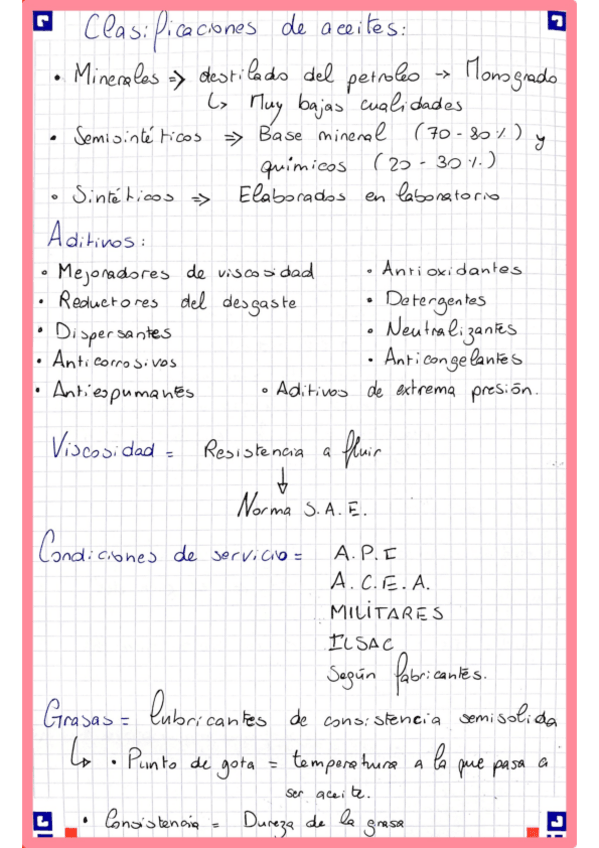 Clasificaciones de aceites:
• Minerales => destilado del petroleo -> Monogrado
↳ Muy bajas cualidades
• Semisintéticos => Base mineral (70-80%) y
químicos (20-30%)
• Sintéticos => Elaborados en laboratorio
Aditivos:
• Mejoradores de viscosidad • Antioxidantes
• Reductores del desgaste • Detergentes
• Dispersantes • Neutralizantes
• Anticorrosivos • Anticongelantes
• Antiespumantes • Aditivos de extrema presión.
Viscosidad = Resistencia a fluir
↓
Norma S.A.E.
Condiciones de servicio = A.P.I
A.C.E.A.
MILITARES
ILSAC
Según fabricantes.
Grasas = lubricantes de consistencia semisolida
↳ • Punto de gota = temperatura a la que pasa a
ser aceite.
• Consistencia = Dureza de la grasa